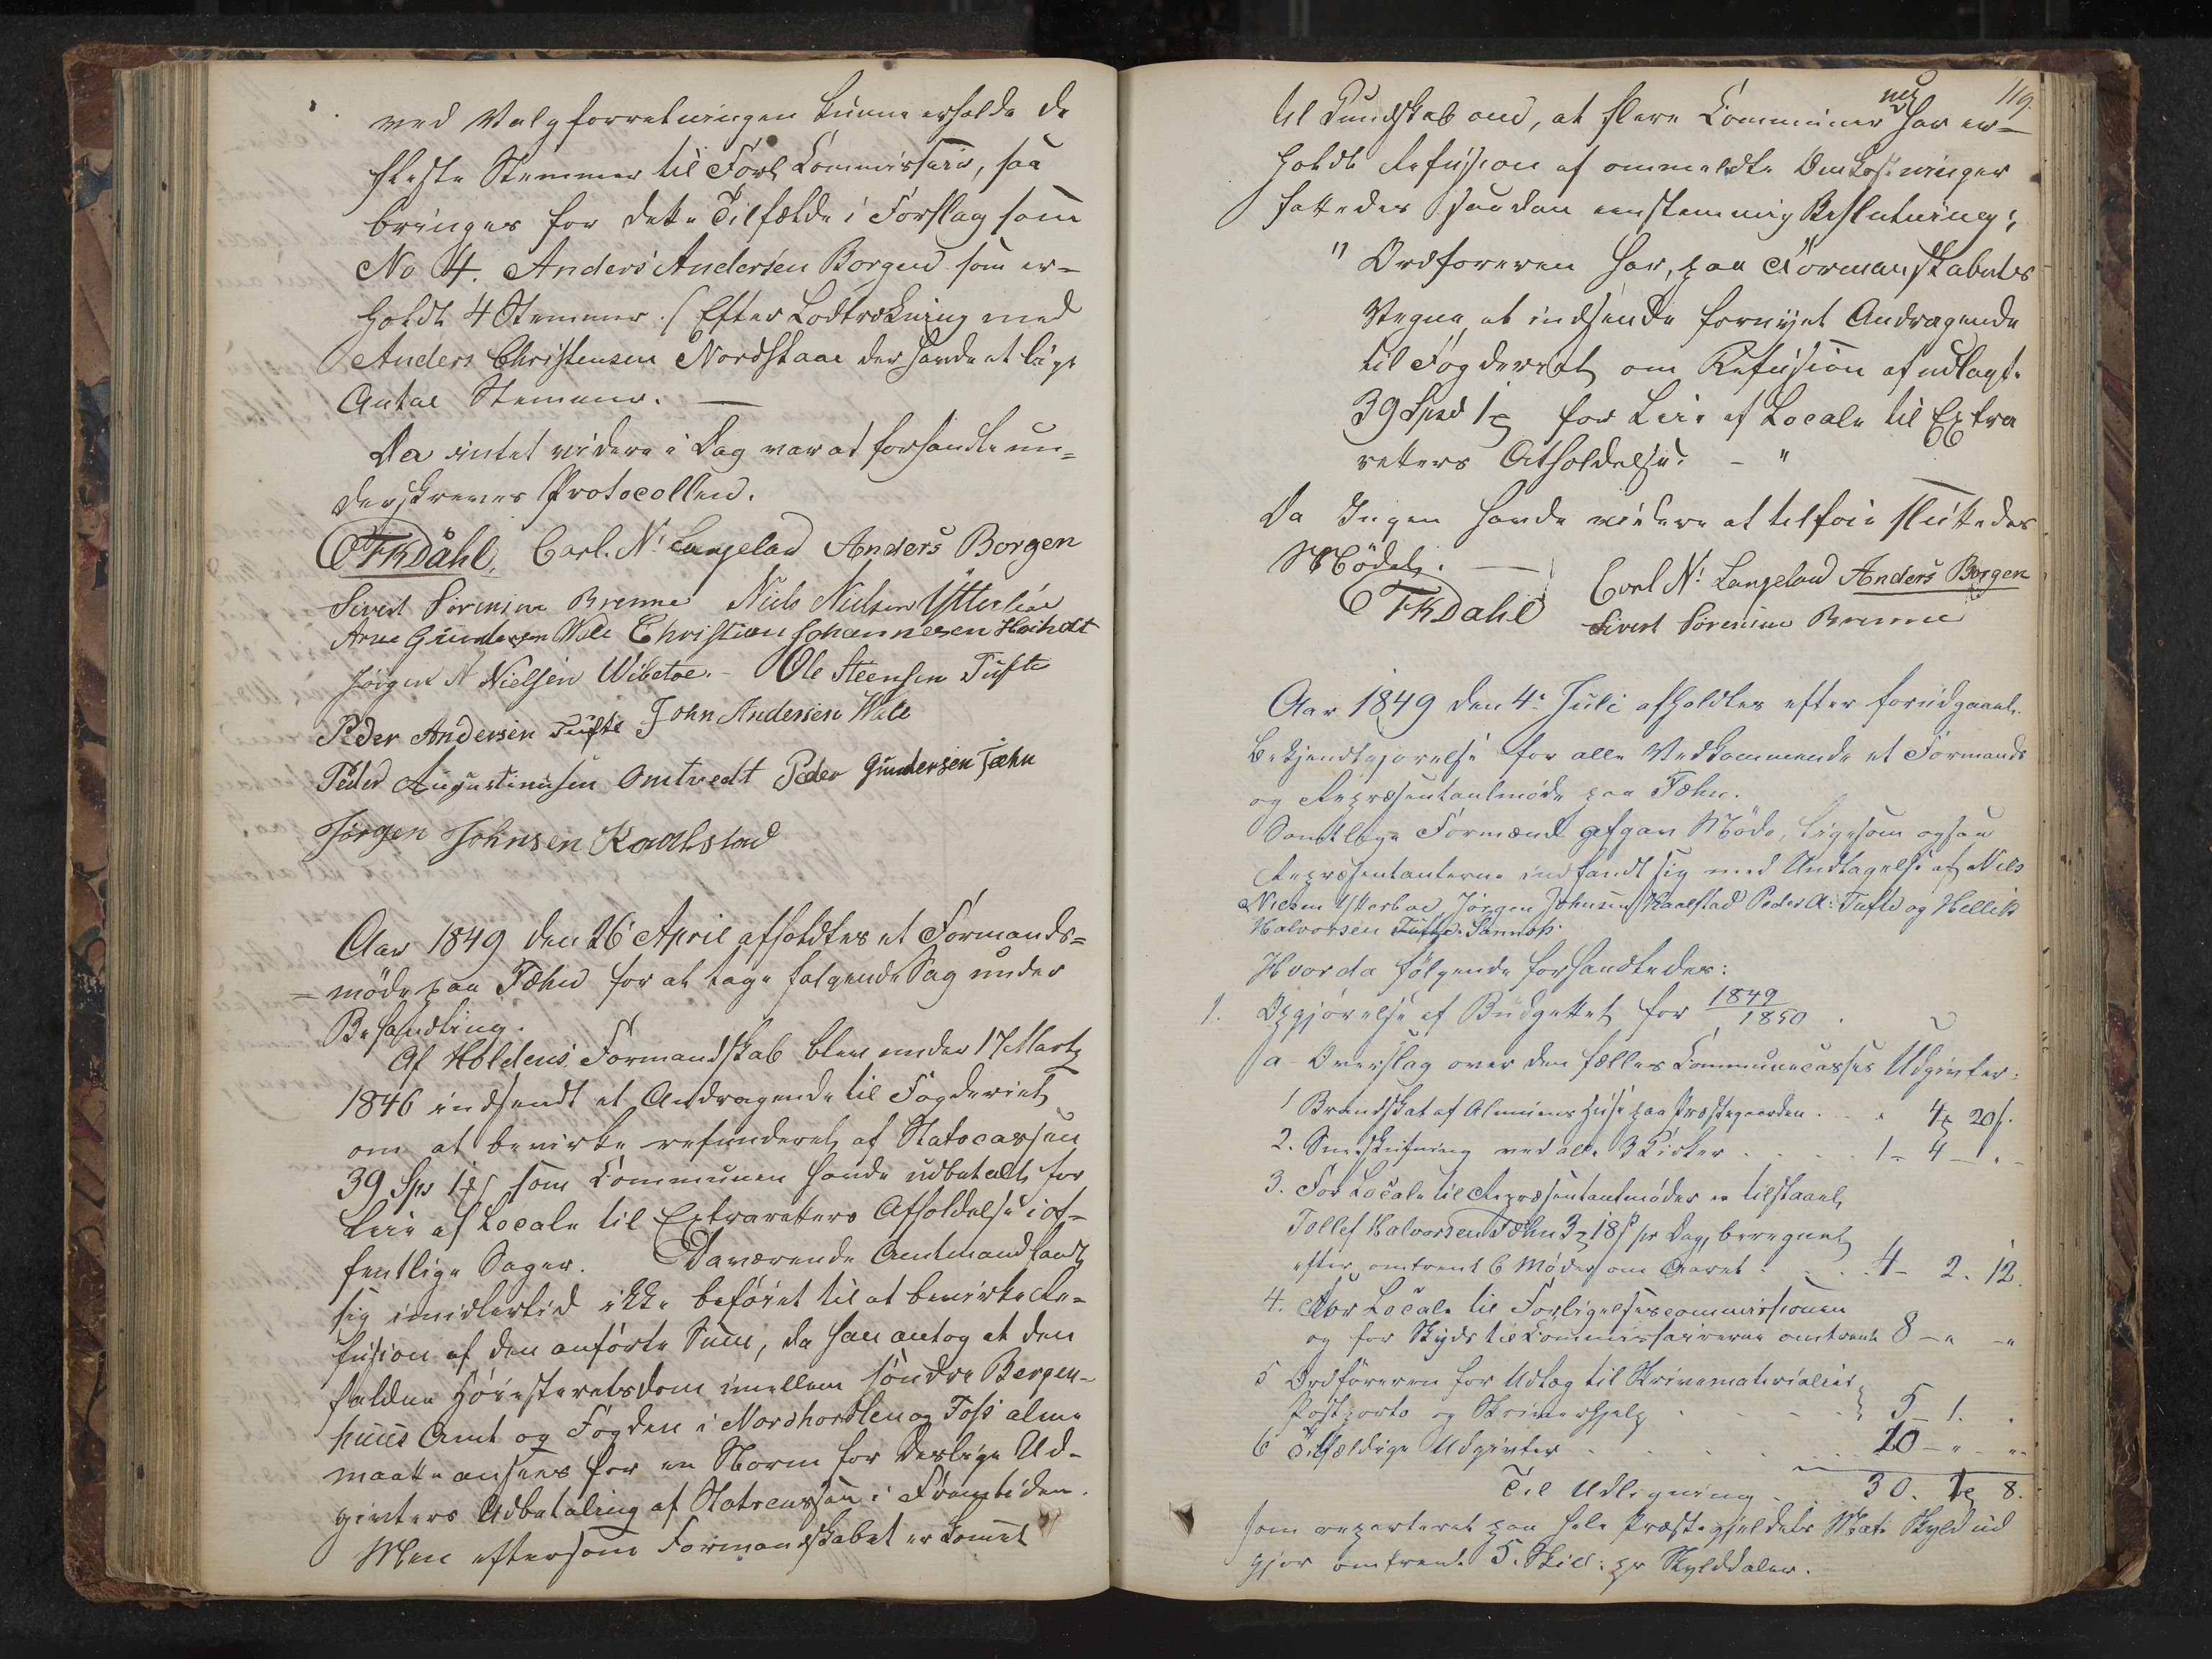 ved Valgforretningen kunne erholde de
fleste Stemmer til Forl. Commissair, saa
bringes for dette Tilfælde i Forslag som
No 4. Anders Andersen Borgen som er-
holdt 4 Stemmer. / Efter Lodtrækning med
Anders Christensen Nordskaae der havde et lige
Antal Stemmer. —
Da intet videre i Dag var at forhandle un-
derskreves Protocollen.
TKDahl. Carl. N. Langeland Anders Borgen
Sivert Sørensen Brenne Niels Nielsen Ytterbøe
Arne Gundersen Wale Christian Johannesen Hoiholt
Jørgen N Nielsen Wibetoe. - Ole Steensen Tufte
Peder Andersen Tufte John Andersen Wale
Peder Augustinusen Omtvedt Peder Gundersen Fæhn
Jørgen Johnsen Kaalstad
Aar 1849 den 26 April afholdtes et Formands-
= møde paa Fæhn for at tage følgende Sag under
Behandling.
Af Holdens Formandskab blev under 17 Marts
1846 indsendt et Andragende til Fogderiet
om at bevirke refunderet af Statscassen
39 Sps 1 som Communen havde udbetalt for
Leie af Locale til Extraretters Afholdelse i of-
fentlige Sager. Daværende Amtmand fandt
sig imidlertid ikke beføiet til at bevirke Re-
fusion af den anførte Sum, da han antog at den
faldne Høiesteretsdom imellem søndre Bergen-
huus Amt og Fogden i Nordhordlen og Voss alene
maatte ansees for en Norm for deslige Ud-
givters Udbetaling af Statscassen i Fremtiden.
Men eftersom Formandskabet er kommet
119.
til Kundskab om, at flere Communer nu har er-
holdt Refusion af ommeldte Omkostninger
fattedes saadan eenstemmig Beslutning:
" Ordføreren har, paa Formandskabets
Vegne at indsende fornyet Andragende
til Fogderiet om Refusion af udlagte
39 Spd 1 for Leie af Locale til Extra
retters Afholdelse. - "
Da Ingen havde videre at tilføie sluttedes
Mødet. —
TKDahl Carl N. Langeland Anders Borgen
Sivert Sørensen Brenne
Aar 1849 den 4. Juli afholdtes efter forudgaaet
Bekjendtgjørelse for alle Vedkommende et Formands
og Repræsentantmøde paa Fæhn.
Samtlige Formænd gav Møde, ligesom ogsaa
Repræsentanterne indfandt sig med Undtagelse af Niels
Nielsen Ytterbøe Jørgen Johnsen Kaalstad Peder A: Tufte og Hellik
Halvorsen Tufte Sannæs.
Hvorda følgende forhandledes:
1. Opgjørelse af Budgettet for 1849/1850.
a - Overslag over den fælles Communecasses Udgivter:
1 Brandskat af Almuens Huse paa Præstegaarden . . " 4 20 s.
2. Sneeskufning ved alle 3 Kirker . . . . 1 - 4 - " -
3. For Locale til Repræsentantmøder er tilstaaet
Tollef Halvorsen Fæhn 3 18 s pr Dag, beregnet
efter omtrent 6 Møder om Aaret . . . 4 - 2. 12.
4. For Locale til Forligelsescommissionen
og for Skyds til Commissairerne omtrent 8 - " - "
5 Ordføreren for Udlæg til Skrivematerialier
Postporto og Skriverhjelp . . . . 5 - 1. "
6 Tilfældige Udgivter . . . . 10 - " - "
Til Udligning 30. 2 8.
som reparteret paa hele Præstegjeldets Mat. Skyld ud
gjør omtrent 5. Skill: pr Skylddaler.